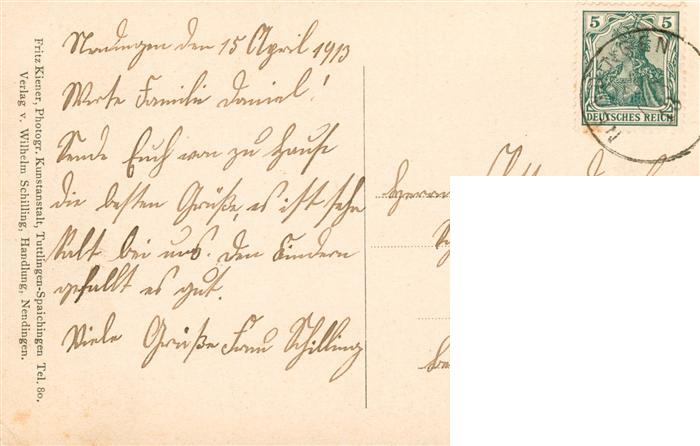 Fritz Kiener, Photogr. Kunstanstalt, Tuttlingen-Spaichingen Tel. 80.
Verlag v. Wilhelm Schilling, Handlung, Nendingen.
Nendingen den 15 April 1913
Werte Familie Daniel!
Sende Euch von zu Hause
die besten Grüße, es ist sehr
kalt bei uns. Den Kindern
gefällt es gut.
Viele Grüße Frau Schilling
5 5
DEUTSCHES REICH
Herrn